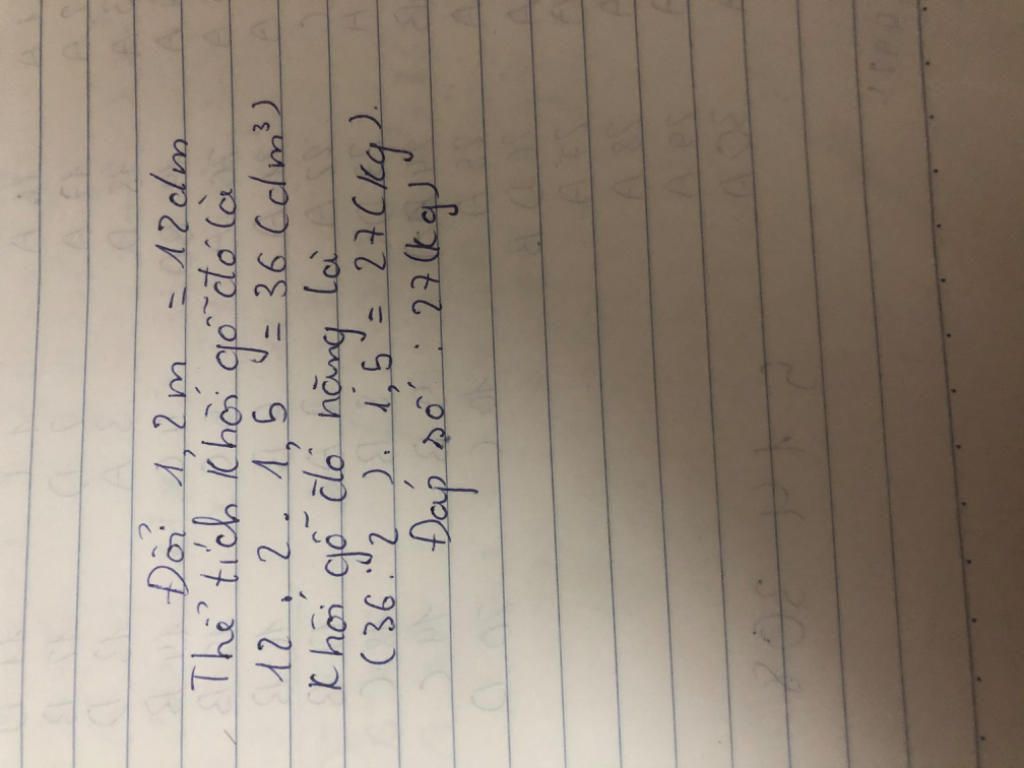 Đổi 1,2m = 12dm
Thể tích khối gỗ đó là
12 . 2 . 1,5 = 36 (dm³)
Khối gỗ đó nặng là
(36 : 2 ) . 1,5 = 27 (kg).
Đáp số : 27 (kg)